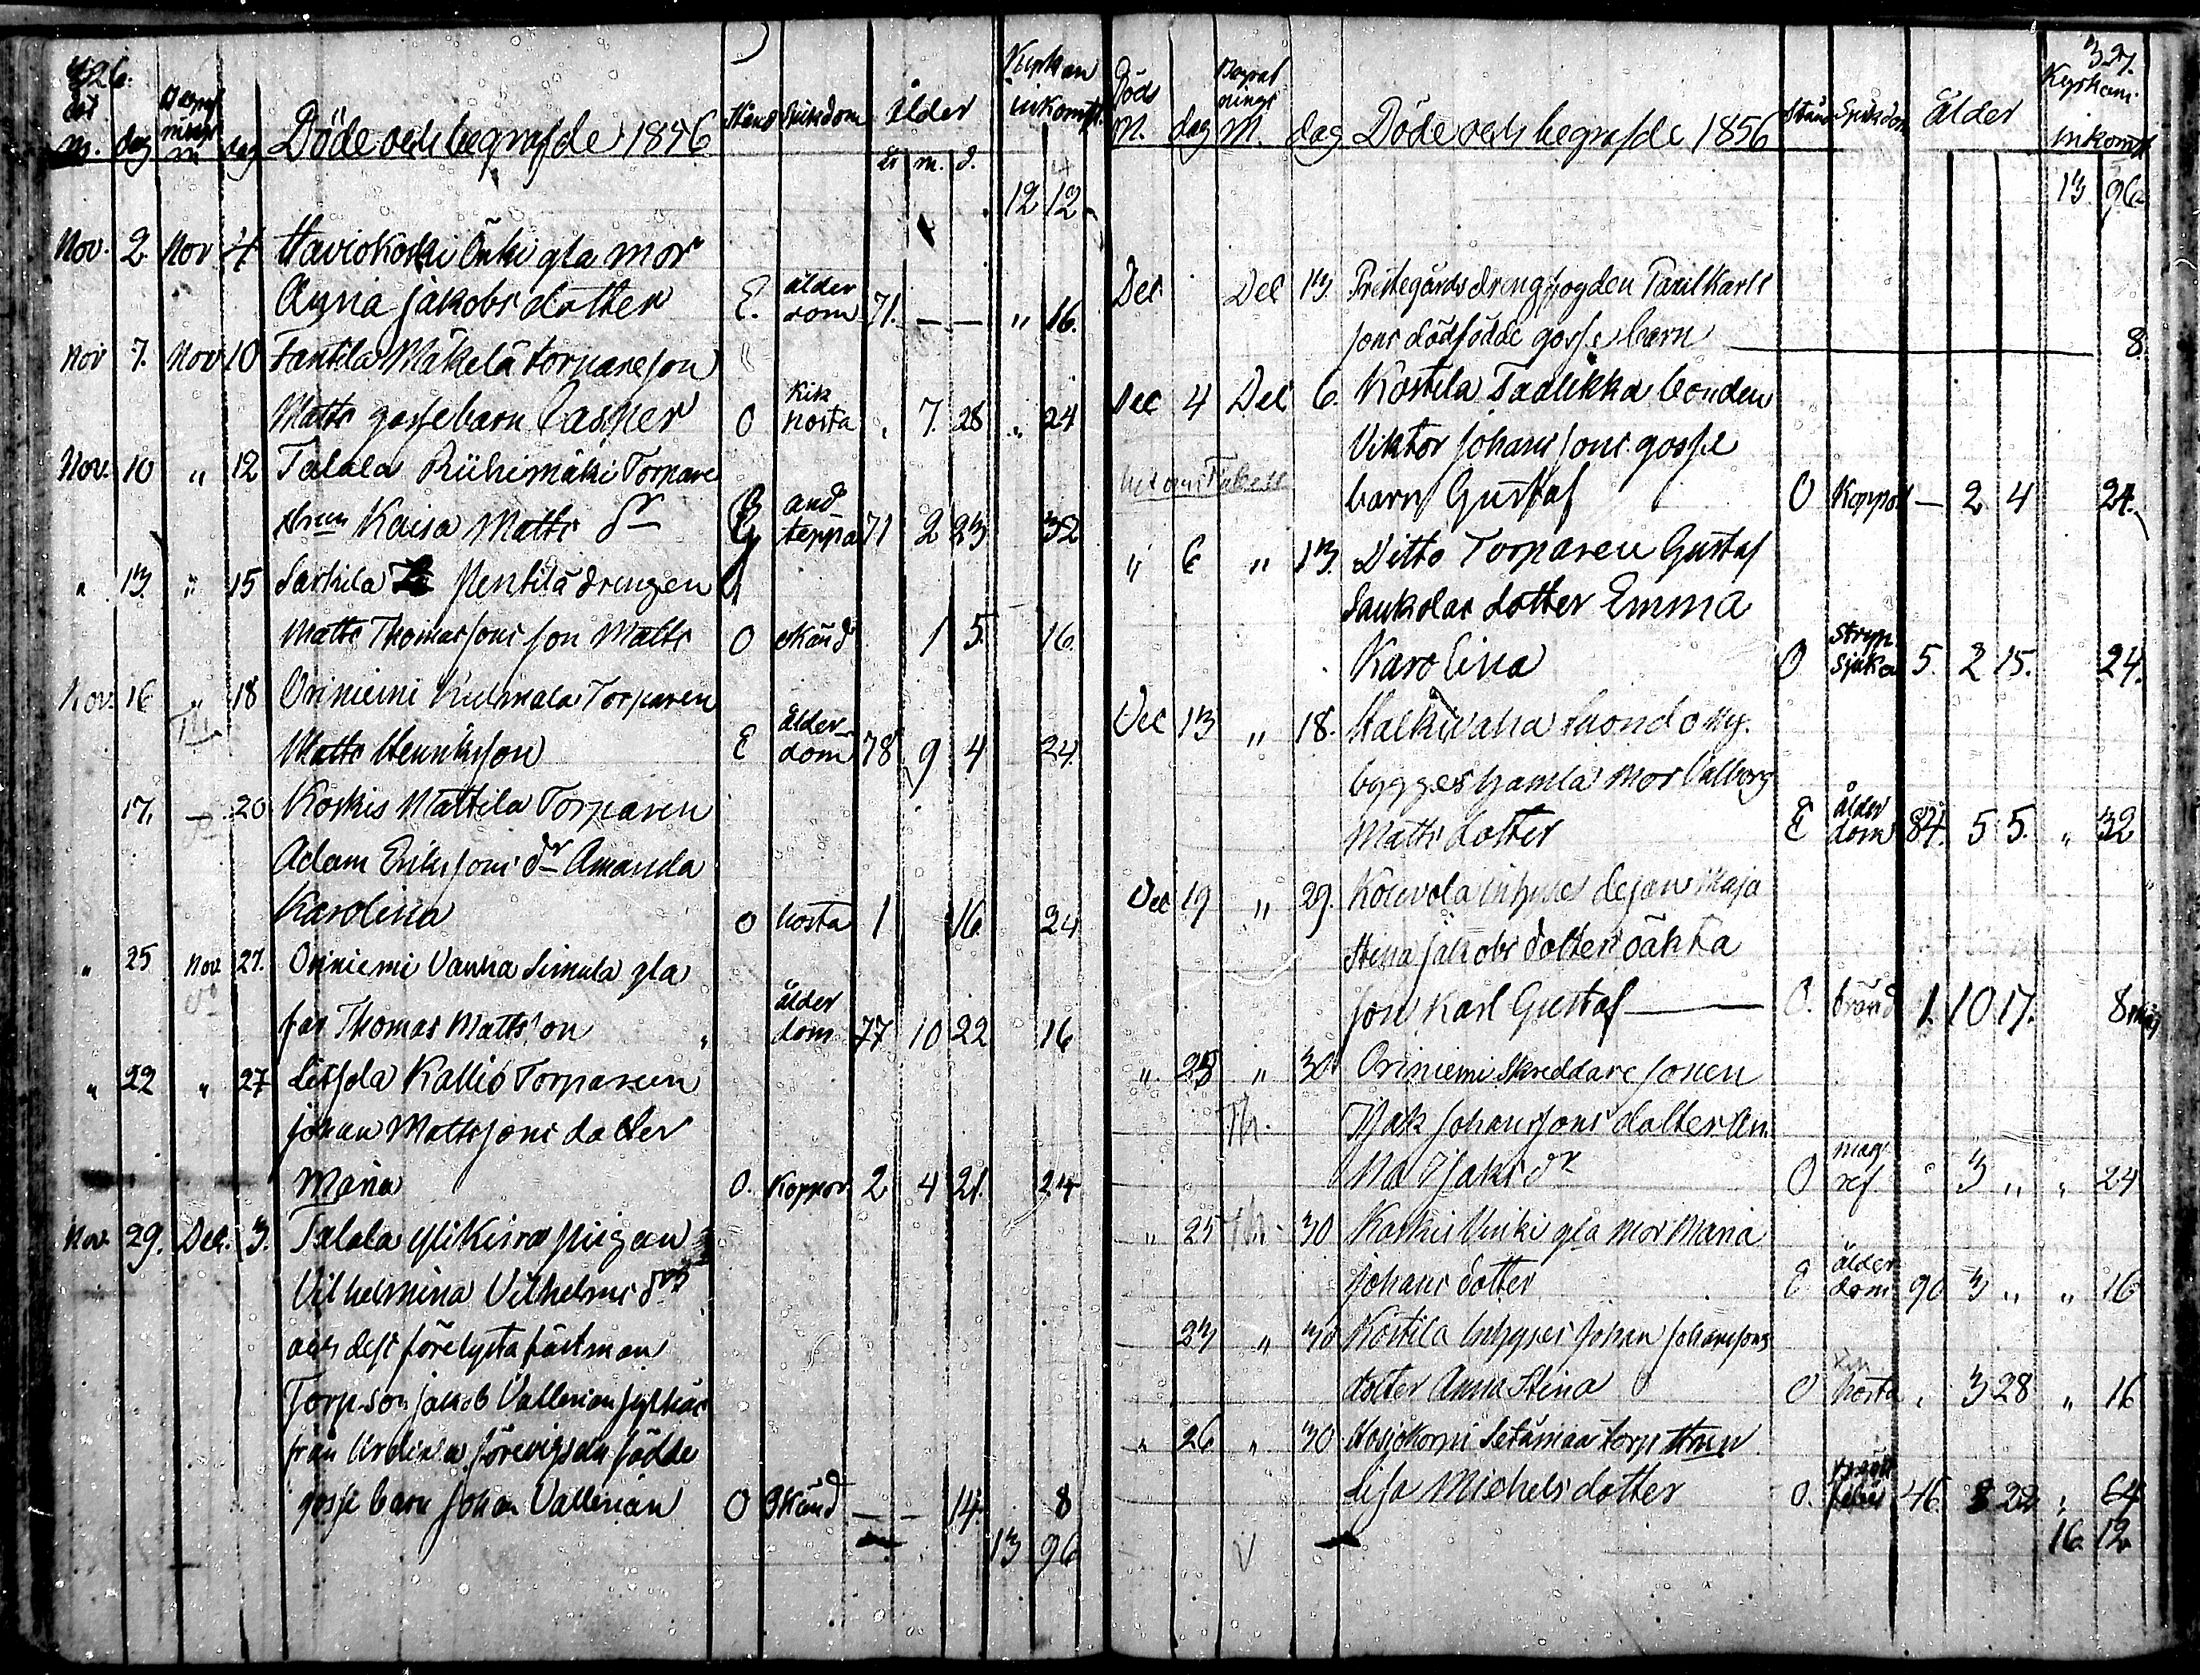 326.
Döds Begrafnings Kyrkans
m. dag m dag Döde och begrafde 1856 Stånd Sjukdom ålder inkomst.
år m. d.
12 12
Nov. 2 Nov 4 Haviokoski Önki gla mor
Anna Jakobs dotter E. ålder dom 71. — — " 16.
Nov 7. Nov 10 Fantila Mäkelä torpareson
Matts gossebarn Casper O kik hosta " 7. 28 " 24
Nov. 10 " 12 Talala Riihimäki Torpare
Kaisa Matts dr G and teppa 71 2 23 32
" 13. " 15 Sarkila Pentilä drengen
Matts Thomassons son Matts O okänd 1 5 16.
Nov. 16 " 18 Oriniemi Torparen
Th.
Matts Henriksson E ålder dom 78 9 4 24
17. — 20 Koskis Mattila Torparen
Adam Erikssons dr Amanda
Karolina O hosta 1 16 24
" 25 Nov 27. Oriniemi Vanha Simula gla
far Thomas Mattsson " ålder dom 77 10 22 16
" 22 " 27 Kallio Torparen
Johan Mattssons dotter
Maria O. Koppor 2 4 21. 24
Nov. 29. Dec. 3. Talala pigan
Vilhelmina Vilhelms dr
och dess förelysta fästman
Torp-son Jakob Vallerian
från Urdiala förevigseln födde
gosse barn Johan Vallerian O Okänd — — 14. 8
13 96
327.
Döds Begrafnings Kyrkans
M. dag M. dag Döde och begrafde 1856 Stånd Sjukdom ålder inkomst
13 96
Dec Dec 13. Prestegårds drengfogden Karls
sons dödfödde gosse barn — 8.
Dec 4 Dec 6. Kostila Taalikka bonden
Viktor Johanssons gosse
barn Gustaf O Koppor — 2 4 24.
" 6 " 13. Ditto Torparen Gustaf
Saukolas dotter Emma
Karolina O stryp sjukan 5. 2 15. 24.
Dec 13 " 18. Halkivaha ny.
bygges gamla mor Valborg
Matts dotter E ålder dom 84. 5 5. " 32
Dec 19 " 29. Kouvola inhyses Maja
Stina Jakobs dotter oäkta
son Karl Gustaf — O. bränd 1. 10 17. 8
" 23 " 30 Oriniemi Skreddare sonen
Th. Isak Johanssons dotter An
na Isaks dr O mag ref " 3 " " 24
" 25 Th. 30 Koskis gla mor Maria
Johans dotter E ålder dom 90 3 " " 16
23 " 30 Kostila inhyses Johan Johanssons
dotter Anna Stina O kik hosta " 3 28 " 16
" 26 " 30 torp
Lisa Michels dotter O. feber 46. 8 22 " 64
16. 12